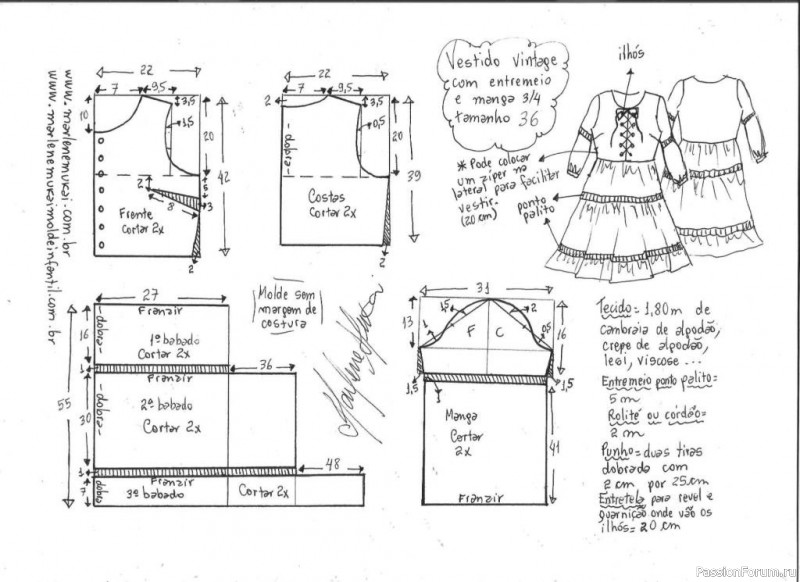 Vestido vintage
com entremeio
e manga 3/4
tamanho 36
ilhós
* Pode colocar
um zíper na
lateral para facilitar
vestir.
(20 cm)
ponto
palito
www.marlenemukai.com.br
www.marlenemukaimoldeinfantil.com.br
22
7
9,5
3,5
10
3,5
20
42
2
5
8
3
2
Frente
Cortar 2x
22
7
9,5
3,5
2
0,5
20
39
-dobra-
Costas
Cortar 2x
2
Molde sem
margem de
costura
27
Franzir
16
-dobra-
1º babado
Cortar 2x
1
36
Franzir
55
30
-dobra-
2º babado
Cortar 2x
1
48
Franzir
7
dobra
3º babado
Cortar 2x
31
13
1,5
2
1
0,5
F
C
16
1,5
1,5
1
Manga
Cortar
2x
41
Franzir
Tecido= 1,80m de
cambraia de algodão,
crepe de algodão,
lesi, viscose ...
Entremeio ponto palito=
5 m
Rolitê ou cordão=
2 m
Punho= duas tiras
dobrada com
2 cm por 25cm
Entretela para revel e
guarnição onde vão os
ilhós= 20 cm
PassionForum.ru